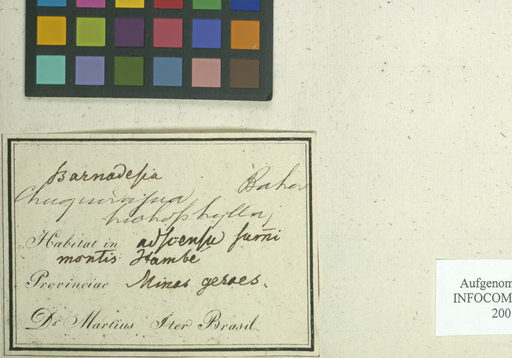 Barnadesia
Chuquiragua Baker
trichophylla
Habitat in adscensu sum̄i
montis Itambé
Provinciae Minas geraes.
Dr Martius Iter Brasil.
Aufgenom
INFOCOM
200